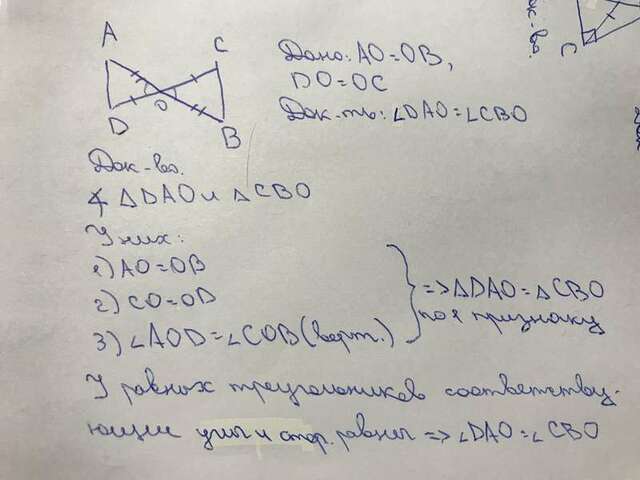 A
C
D
O
B
Дано: AO=OB,
DO=OC
Док-ть: ∠DAO=∠CBO
Док-во.
∢ △DAO и △CBO
У них:
1) AO=OB
2) CO=OD
3) ∠AOD=∠COB (верт.)
=> △DAO=△CBO
по 1 признаку
У равных треугольников соответству-
ющие углы и стор. равны => ∠DAO=∠CBO
Док-во.
C